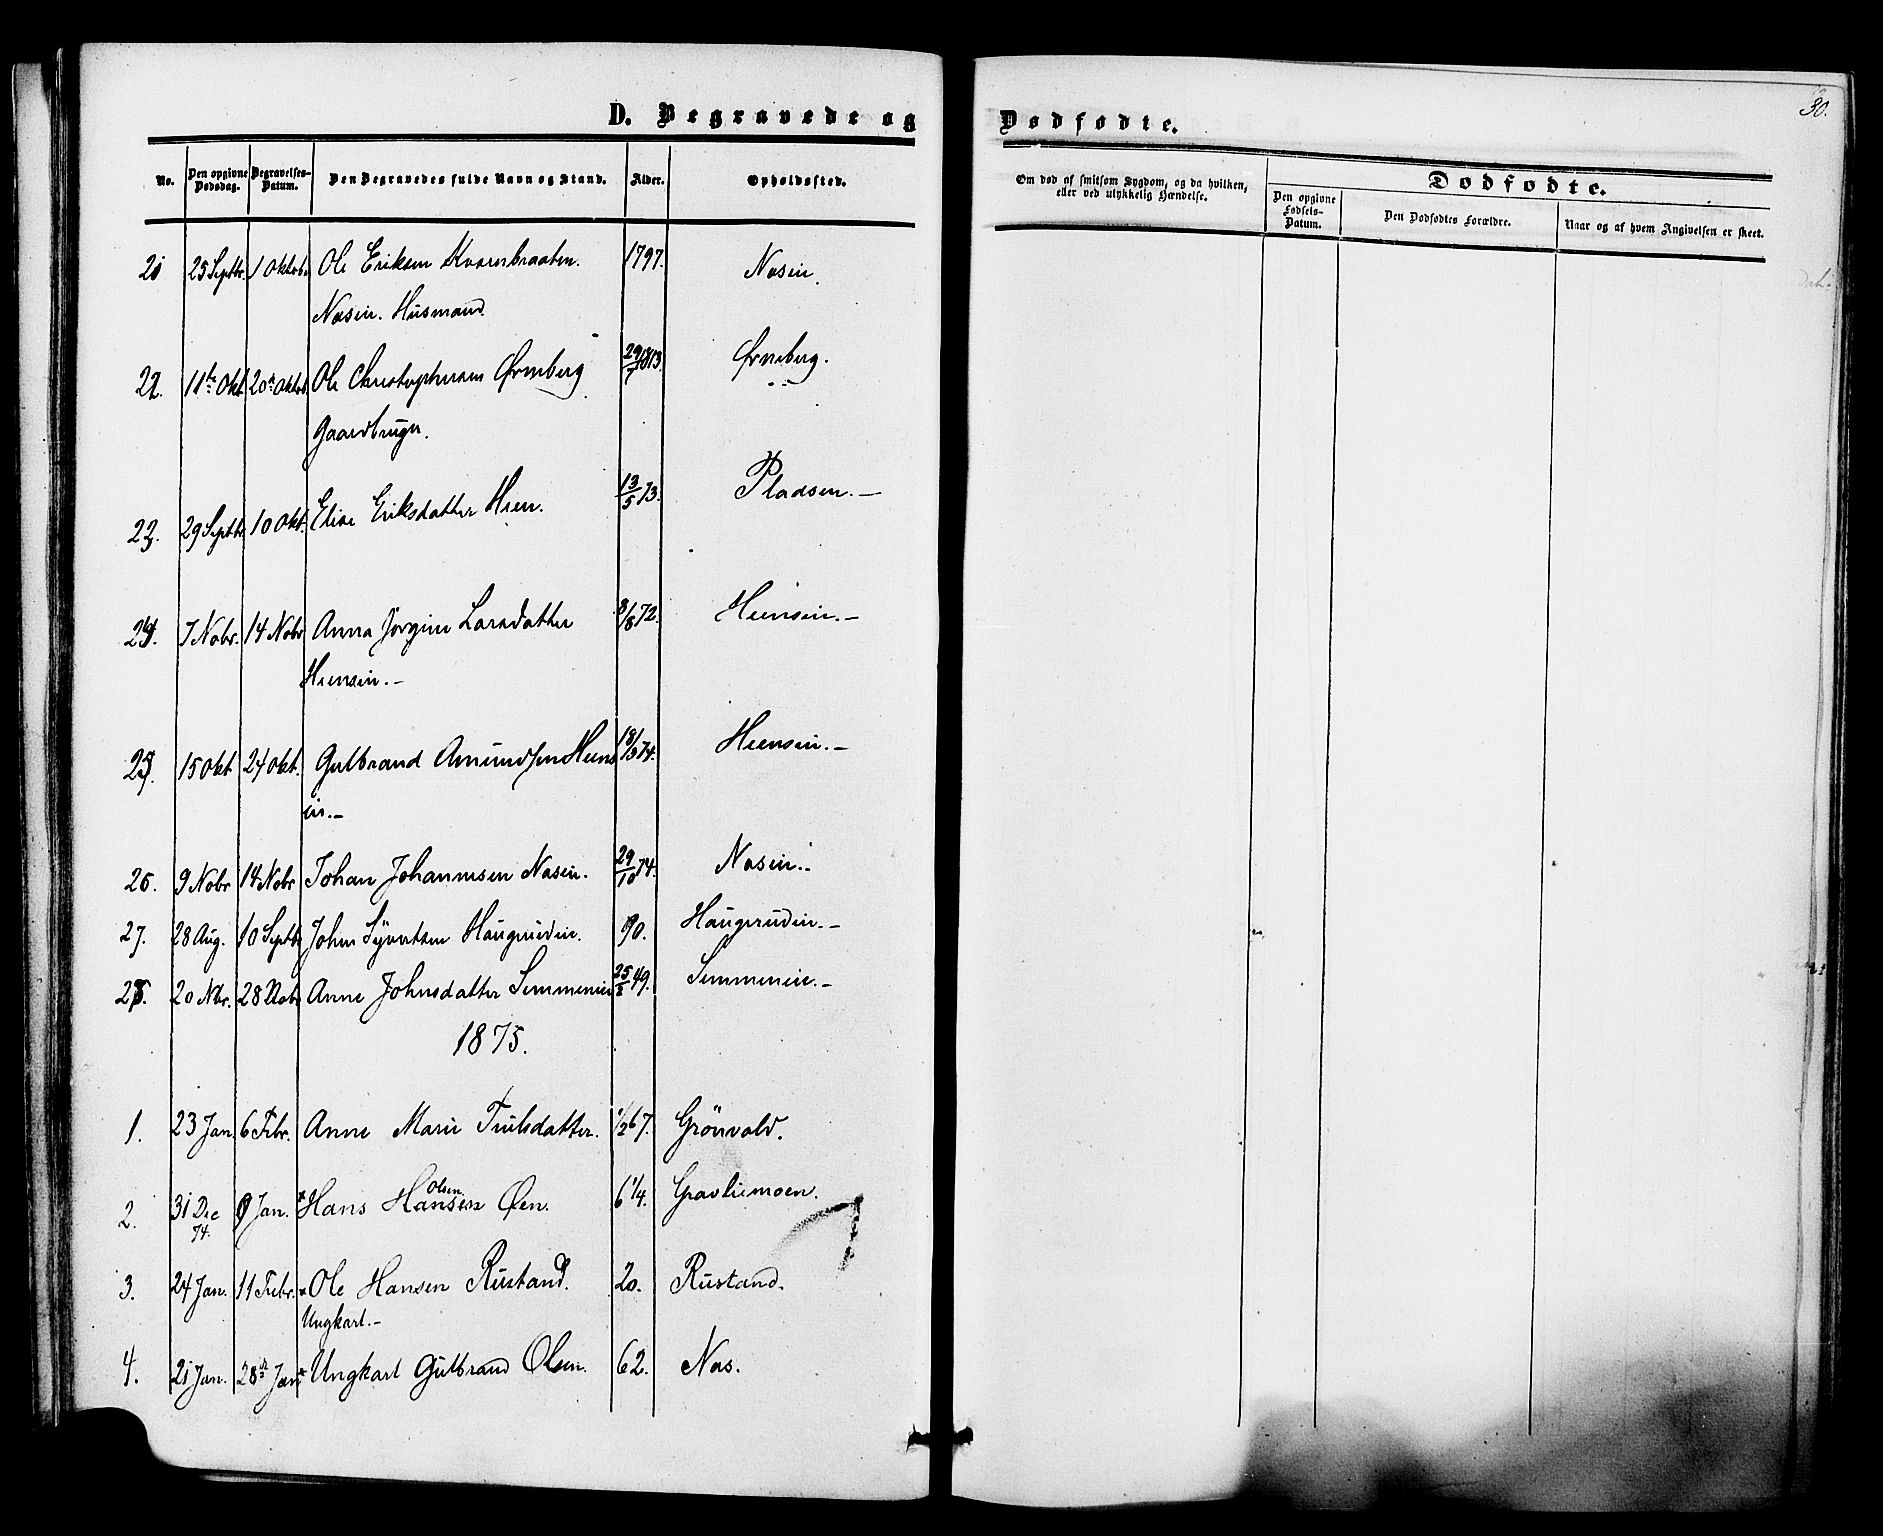 D. Begravede og
No. Den opgivne Dødsdag. Begravelses-Datum. Den Begravedes fulde Navn og Stand. Alder. Opholdssted.
21 25 Septbr. 1 Oktobr Ole Eriksen Kvernbraaten. 1797. Næsin.
Næsin. Husmand.
22. 11te Okt. 20de Oktob. Ole Christophersen Ørneberg 29/7 1813. Ørneberg.
Gaardbruger.
23. 29 Septbr 10 Okt. Elise Eriksdatter Hien. 13/5 73. Pladsen.—
24. 7 Nobr. 14 Nobr Anna Jørgine Larsdatter 8/8 72. Hiensin.—
Hiensin.—
25. 15 Okt. 24 Okt. Gulbrand Amundsen Hiens 18/3 74. Hiensin.—
in.—
26. 9 Nobr 14 Nobr Johan Johannesen Næsin. 29/10 74. Næsin.
27. 28 Aug. 10 Septbr John Syvertsen Haugerudin. 90. Haugerudin.—
28. 20 Nbr. 28 Nobr Anne Johnsdatter Semmenin 25/2 49. Semmenin.—
1875.
1. 23 Jan. 6 Febr. Anne Marie Trulsdatter. 1/2 67. Grönvold.
Olsen
2. 31 Dec 74. 9 Jan. × Hans Hansen Øen. 6 1/4. Gravliemoen.
3. 24 Jan. 11 Febr. × Ole Hansen Rustand. 20. Rustand.
Ungkarl.—
4. 21 Jan. 28de Jan. × Ungkarl Gulbrand Olsen. 62. Næs.
30.
Dødfødte.
Om død af smitsom Sygdom, og da hvilken, eller ved ulykkelig Hændelse.
Dødfødte.
Den opgivne Fødsels-Datum. Den Dødfødtes Forældre. Naar og af hvem Angivelsen er skeet.